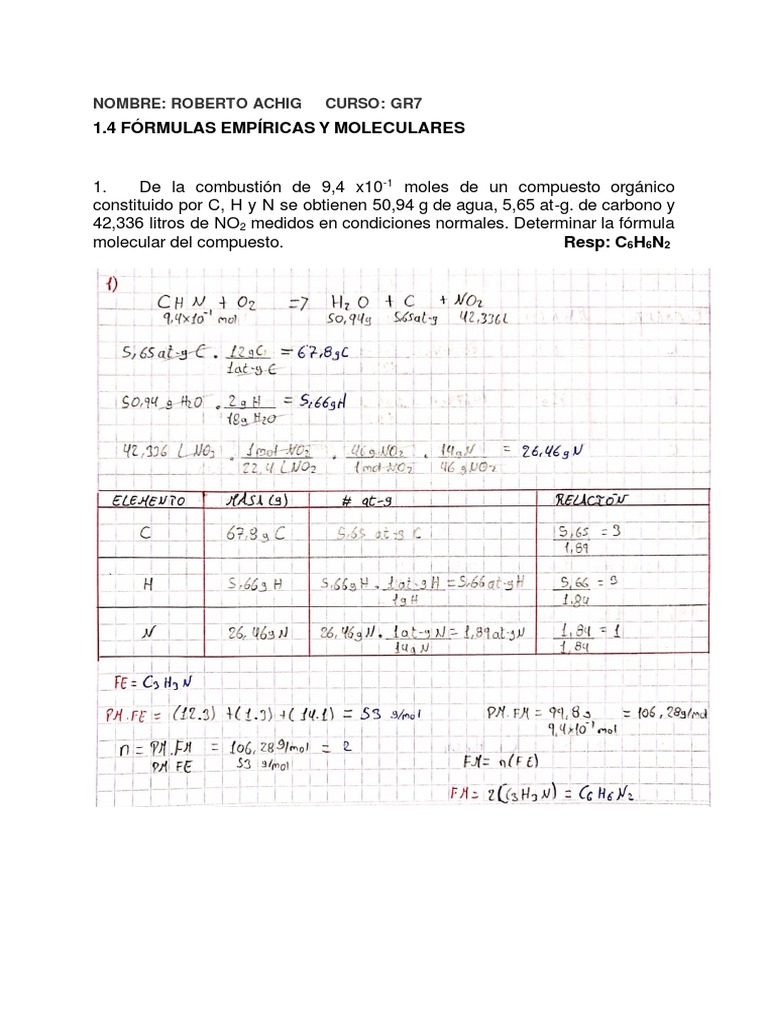 NOMBRE: ROBERTO ACHIG CURSO: GR7
1.4 FÓRMULAS EMPÍRICAS Y MOLECULARES
1. De la combustión de 9,4 x10⁻¹ moles de un compuesto orgánico
constituido por C, H y N se obtienen 50,94 g de agua, 5,65 at-g. de carbono y
42,336 litros de NO₂ medidos en condiciones normales. Determinar la fórmula
molecular del compuesto. Resp: C₆H₆N₂
1)
C H N + O₂ => H₂O + C + NO₂
9,4x10⁻¹ mol 50,94g 5,65at-g 42,336L
5,65 at-g C . 12gC / 1at-g C = 67,8gC
50,94 g H₂O . 2g H / 18g H₂O = 5,66gH
42,336 L NO₃ . 1mol NO₂ / 22,4 L NO₂ . 46g NO₂ / 1mol NO₂ . 14gN / 46 g NO₂ = 26,46gN
ELEMENTO MASA (g) # at-g RELACIÓN
C 67,8g C 5,65 at-g C 5,65 / 1,89 = 3
H 5,66g H 5,66gH . 1at-gH / 1gH = 5,66at-gH 5,66 / 1,84 = 3
N 26,46gN 26,46gN . 1at-gN / 14gN = 1,89at-gN 1,84 / 1,84 = 1
FE = C₃H₃N
PM.FE = (12.3) + (1.3) + (14.1) = 53 g/mol PM.FM = 99,8g / 9,4x10⁻¹ mol = 106,28g/mol
n = PM.FM / PM FE = 106,28g/mol / 53 g/mol = 2 FM = n(FE)
FM = 2(C₃H₃N) = C₆H₆N₂